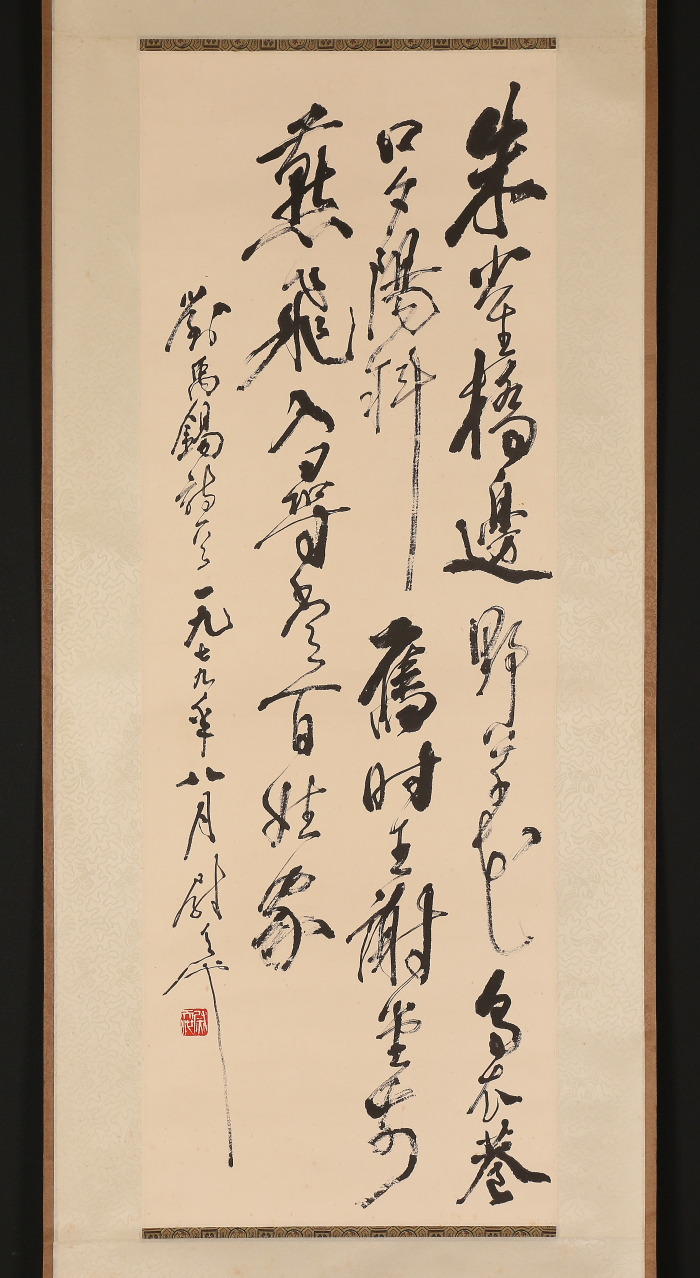 朱雀橋邊野草花烏衣巷
口夕陽斜舊时王謝堂前
燕飛入尋常百姓家
劉禹錫詩一九七九年八月尉天池